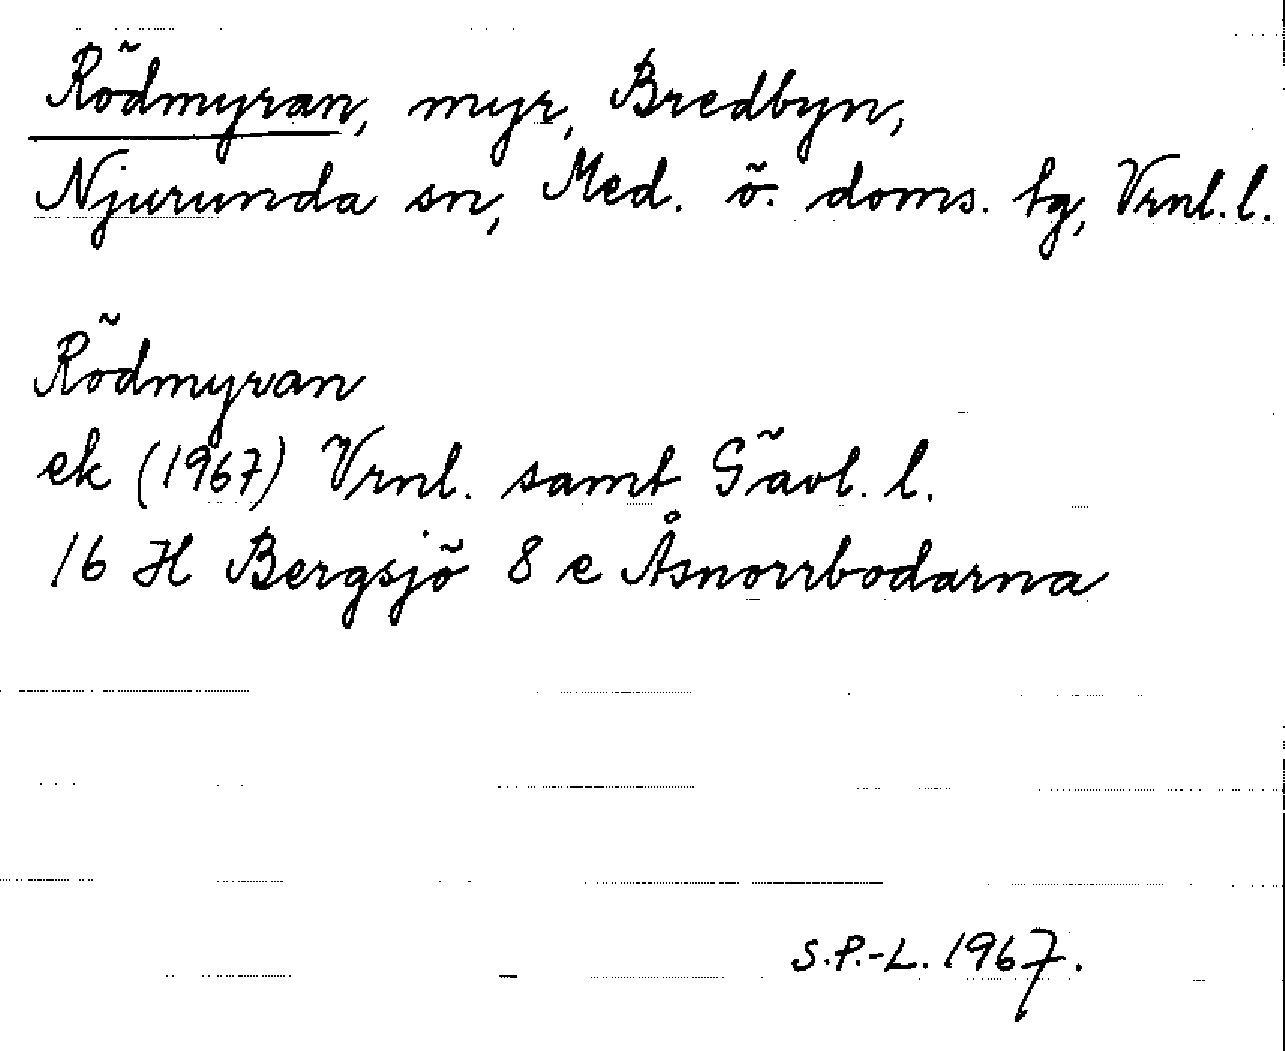 Rödmyran, myr, Bredbyn,
Njurunda sn, Med. ö. doms. tg, Vrnl. l.
Rödmyran
ek (1967) Vrnl. samt Gävl. l.
16 H Bergsjö 8 e Åsnorrbodarna
S.P.-L. 1967.